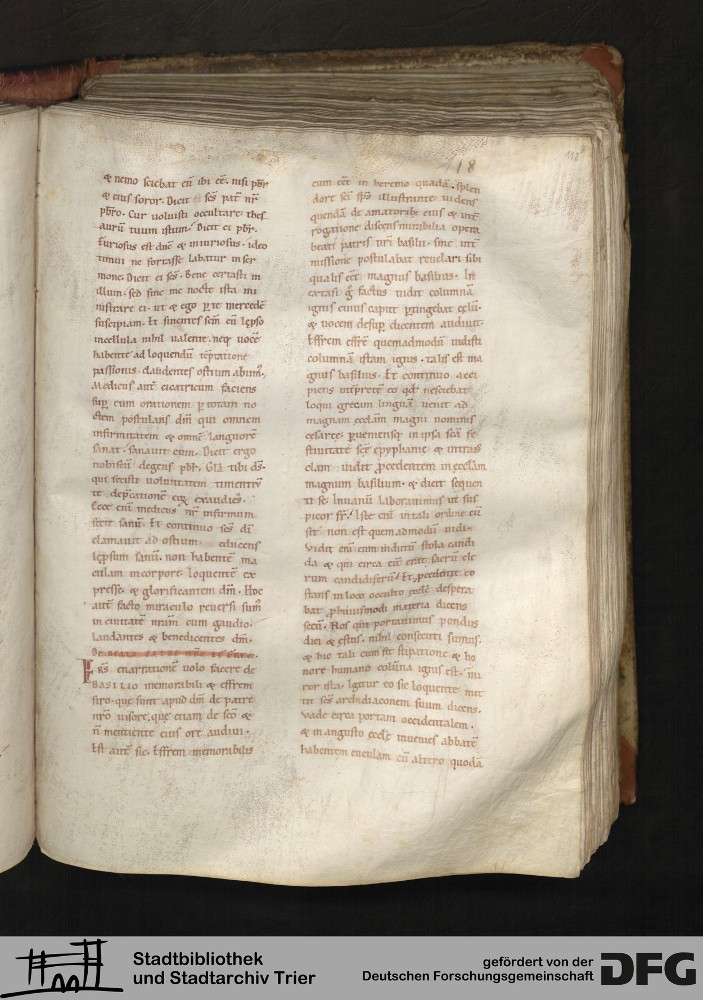 18
112
& nemo sciebat cū ibi eē. nisi pbr̄
& eius soror. Dicit scs̄ pat̄ nr̄
pbr̄o. Cur voluisti occultare thes
aurū tuum istum. Dicit ei pbr̄.
furiosus est dn̄e & iniuriosus. ideo
timui ne fortasse labatur in ser
mone. Dicit ei scs̄. Bene certasti in
illum. sed sine me nocte ista mi
nistrare ei. ut & ego p te mercedē
suscipiam. Et sinentes scm̄ cū lepso
in cellula nihil valente. neq; vocē
habente ad loquendū
passionis. claudentes ostium abierūt.
Medicus autē cicatricum faciens
sup eum orationem p totam no
ctem postulans dm̄ qui omnem
infirmitatem & omnē languorē
sanat. sanavit eum. Dicit ergo
nobiscū degens pbr̄. Gl̄a tibi ds̄.
qui fecisti voluntatem timentiū
te exaudies.
Ecce enī medicus nr̄ infirmum
fecit sanū. Et continuo scs̄ dī
clamavit ad ostium educens
lepsum sanū. non habentē ma
culam in corpore. loquentē ex
presse. & glorificantem dm̄. Hoc
autē facto miraculo reversi sum'
in civitatē nram̄ cum gaudio.
laudantes & benedicentes dm̄.
enarrationē volo facere de
BASILIO memorabili & effrem
siro. que sunt apud dm̄ de patre
nr̄o visore. que etiam de scō &
n̄ mentiente eius ore audivi.
Est autē sic. Effrem memorabilis
cum eēt in heremo quadā. splen
dore scī sps̄ illustrante. videns
quendā de amatorib; eius & inte
rogatione discens mirabilia opera
beati patris nr̄i basilii. sine inte
missione postulabat revelari sibi
qualis eēt magnus basilius. In
extasi g̊ factus vidit columnā
ignis cuius caput ptingebat cęlū.
& vocem desup dicentem audivit.
Effrem effrē quemadmodū vidisti
columnā istam ignis. talis est ma
gnus basilius. Et continuo acci
piens intp̄retē eo qd̄ nesciebat
loqui grecam linguā. venit ad
magnam eccl̄am magni nominis
cesaree. pvēniensq; in ipsa scā fe
stivitate scę epyphanie & intras
clam vidit pcedentem in eccl̄am
magnum basilium. & dicit sequen
ti se. In vanū laboravimus ut sus
picor fr̄. Iste enī in tali ordine cū
sit non est quem admodū vidi.
Vidit enī eum indutū stola candi
da & qui circa eū erat sacrū cle
rum candidiferū. Et pcedente eo
stans in loco occulto eccl̄e despera
bat p huiusmodi materia dicens
secū. Nos qui portavimus pondus
diei & ęstus. nihil consecuti sumus.
& hic tali cum sit stipatione & ho
nore humano colūna ignis est. mi
ror ista. Igitur eo sic loquente mit
tit scs̄ archidiaconem suum dicens.
vade circa portam occidentalem.
& in angusto eccl̄e invenies abbatē
habentem cucullam cū altero quodā
Stadtbibliothek
und Stadtarchiv Trier
gefördert von der
Deutschen Forschungsgemeinschaft
DFG